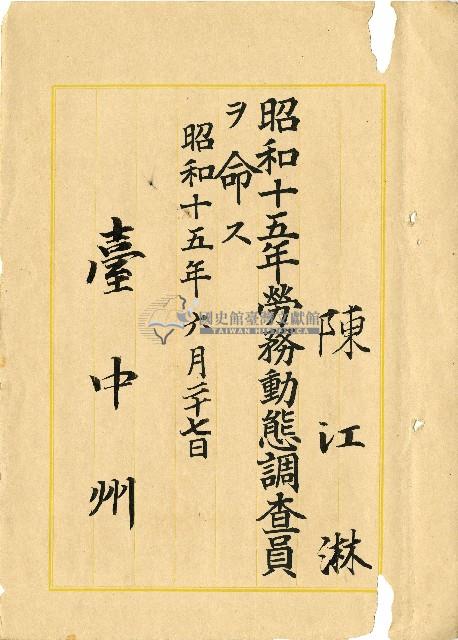 陳江淋
昭和十五年勞務動態調查員
ヲ命ス
昭和十五年六月二十七日
臺中州
國史館臺灣文獻館
TAIWAN HISTORICA